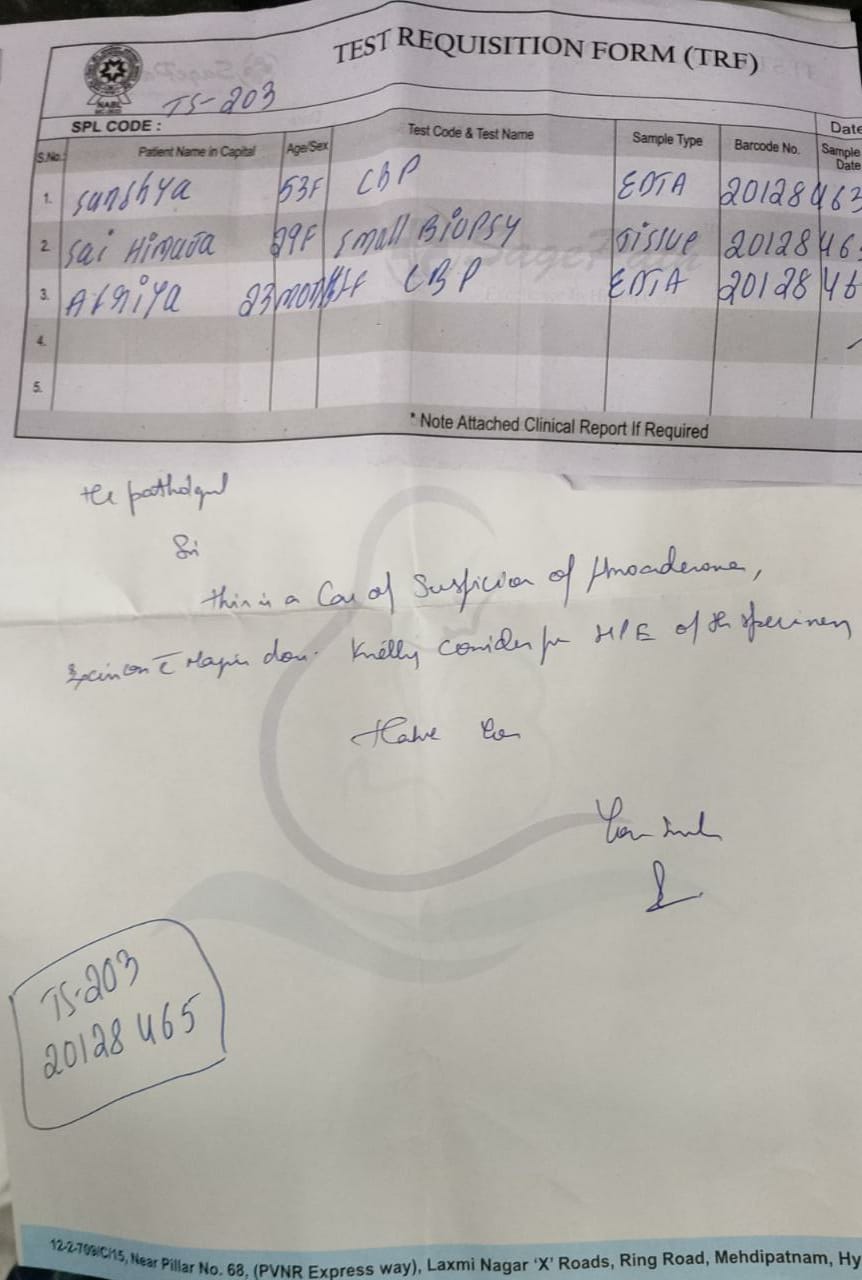 TEST REQUISITION FORM (TRF)
NABL
TS-203
SPL CODE :
Date
S.No. Patient Name in Capital Age/Sex Test Code & Test Name Sample Type Barcode No. Sample Date
1. Sandhya 53F CBP EDTA 20128463
2. Sai Himaja 29F Small BIOPSY Tissue 2012846
3. 23 months/F CBP EDTA 2012846
4.
5.
* Note Attached Clinical Report If Required
the pathologist
Sir
this is a Case of Suspicion of fibroadenoma,
Excision c margin done. Kindly consider for HPE of the specimen
Thank you
TS-203
20128465
12-2-709/C/15, Near Pillar No. 68, (PVNR Express way), Laxmi Nagar 'X' Roads, Ring Road, Mehdipatnam, Hy